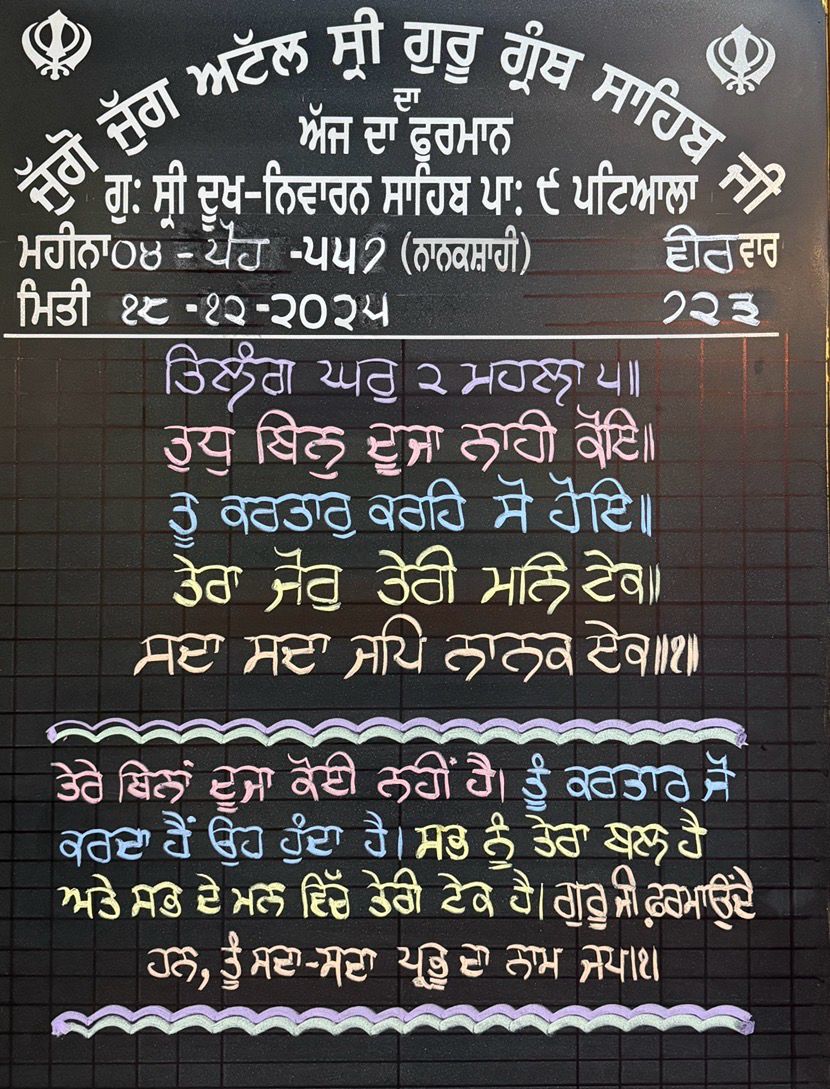 ਜੁੱਗੋ ਜੁੱਗ ਅਟੱਲ ਸ੍ਰੀ ਗੁਰੂ ਗ੍ਰੰਥ ਸਾਹਿਬ ਜੀ
ਦਾ
ਅੱਜ ਦਾ ਫੁਰਮਾਨ
ਗੁ: ਸ੍ਰੀ ਦੂਖ-ਨਿਵਾਰਨ ਸਾਹਿਬ ਪਾ: ੯ ਪਟਿਆਲਾ
ਮਹੀਨਾ ੦੪ - ਪੋਹ -੫੫੭ (ਨਾਨਕਸ਼ਾਹੀ) ਵੀਰ ਵਾਰ
ਮਿਤੀ ੧੮ -੧੨ -੨੦੨੫ ੭੨੩
ਤਿਲੰਗ ਘਰੁ ੨ ਮਹਲਾ ੫॥
ਤੁਧੁ ਬਿਨੁ ਦੂਜਾ ਨਾਹੀ ਕੋਇ॥
ਤੂ ਕਰਤਾਰੁ ਕਰਹਿ ਸੋ ਹੋਇ॥
ਤੇਰਾ ਜੋਰੁ ਤੇਰੀ ਮਨਿ ਟੇਕ॥
ਸਦਾ ਸਦਾ ਜਪਿ ਨਾਨਕ ਏਕ॥੧॥
ਤੇਰੇ ਬਿਨਾਂ ਦੂਜਾ ਕੋਈ ਨਹੀਂ ਹੈ। ਤੂੰ ਕਰਤਾਰ ਜੋ
ਕਰਦਾ ਹੈਂ ਉਹ ਹੁੰਦਾ ਹੈ। ਸਭ ਨੂੰ ਤੇਰਾ ਬਲ ਹੈ
ਅਤੇ ਸਭ ਦੇ ਮਨ ਵਿੱਚ ਤੇਰੀ ਟੇਕ ਹੈ। ਗੁਰੂ ਜੀ ਫ਼ਰਮਾਉਂਦੇ
ਹਨ, ਤੂੰ ਸਦਾ-ਸਦਾ ਪ੍ਰਭੂ ਦਾ ਨਾਮ ਜਪ।੧।